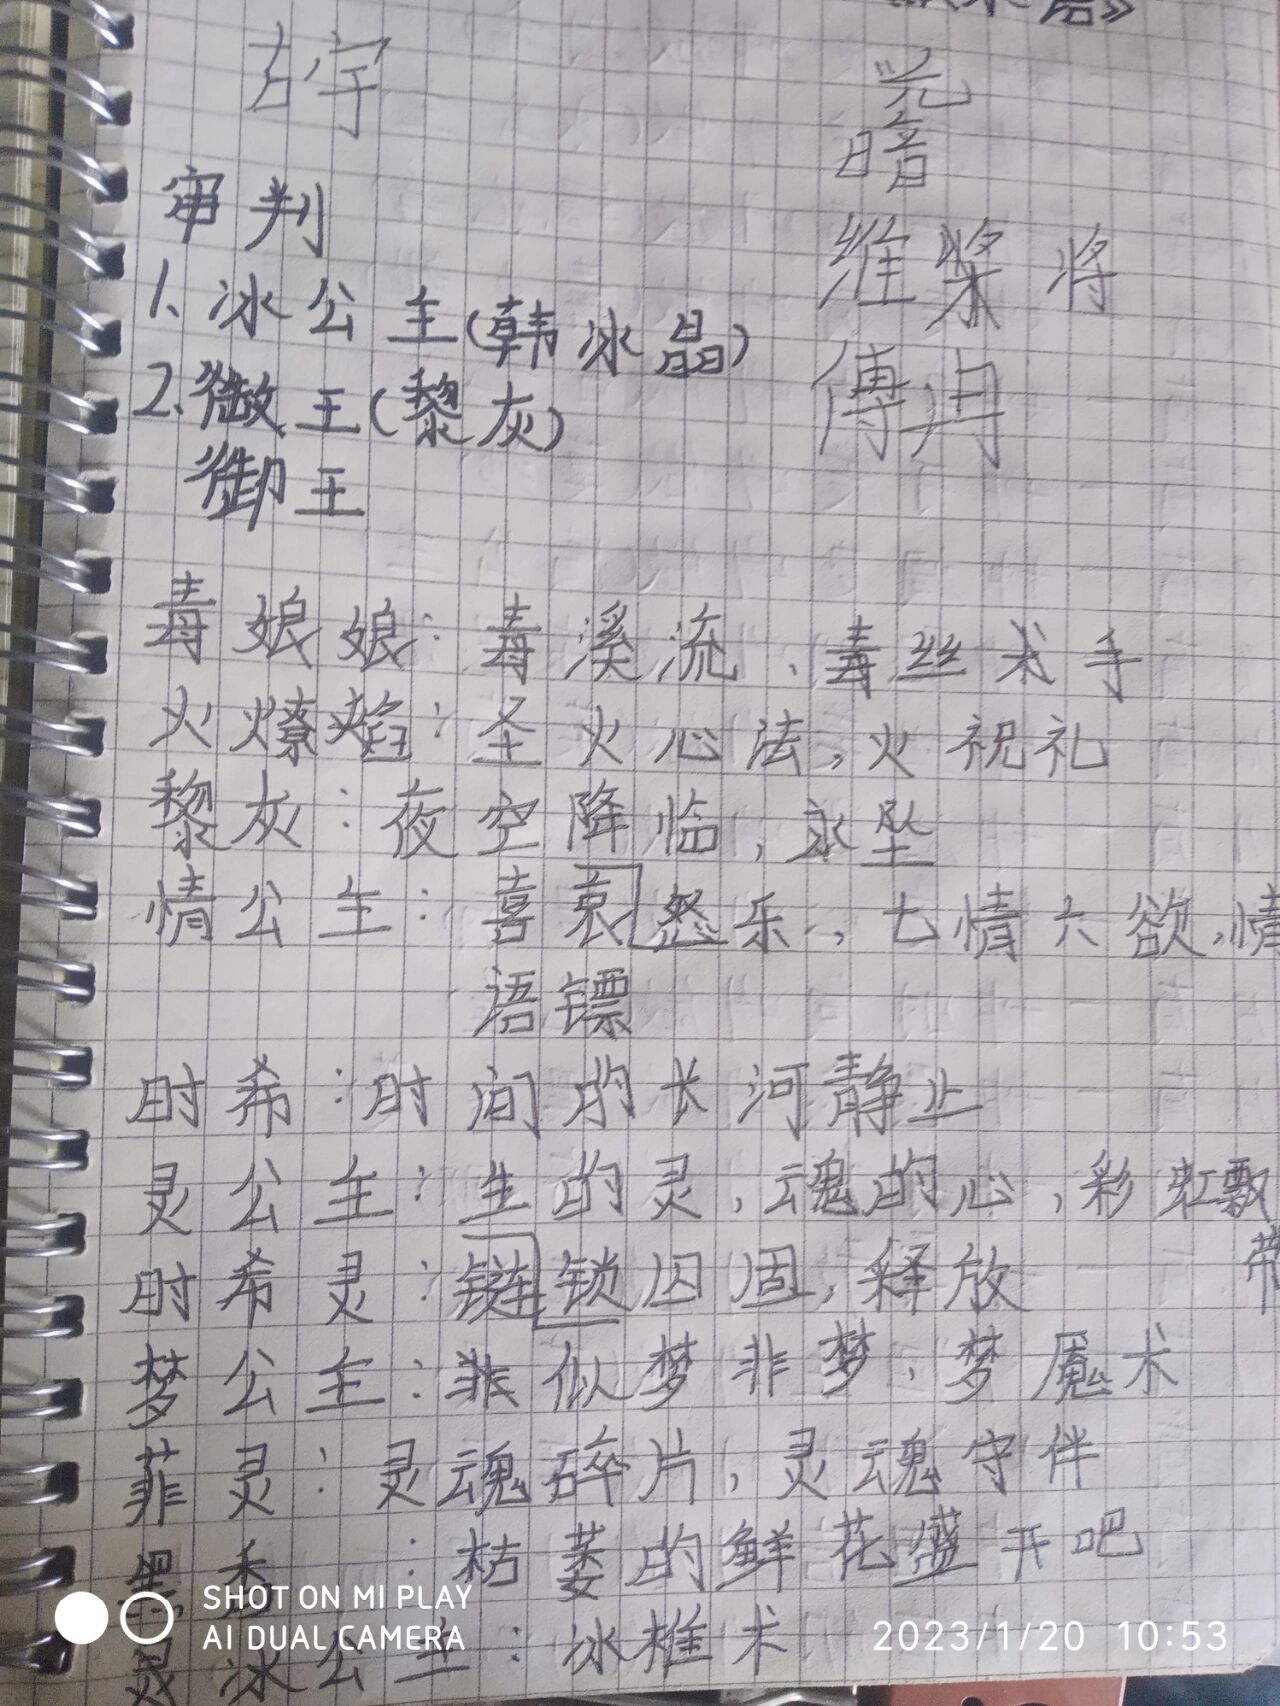 古宇
光
暗
审判
维 桨 将
1、冰公主(韩冰晶)
傅冄
2、王(黎灰)
御王
毒娘娘：毒溪流、毒丝术手
火燎焰：圣火心法,火祝礼
黎灰：夜空降临,永坠
情公主：喜哀怒乐,七情六欲,情
语镖
时希：时间的长河静止
灵公主：生的灵,魂的心,彩虹飘
带
时希灵：链锁囚固,释放
梦公主：似梦非梦、梦魇术
菲灵：灵魂碎片,灵魂守伴
黑香：枯萎的鲜花盛开吧
冰公主：冰椎术
SHOT ON MI PLAY
AI DUAL CAMERA
2023/1/20 10:53